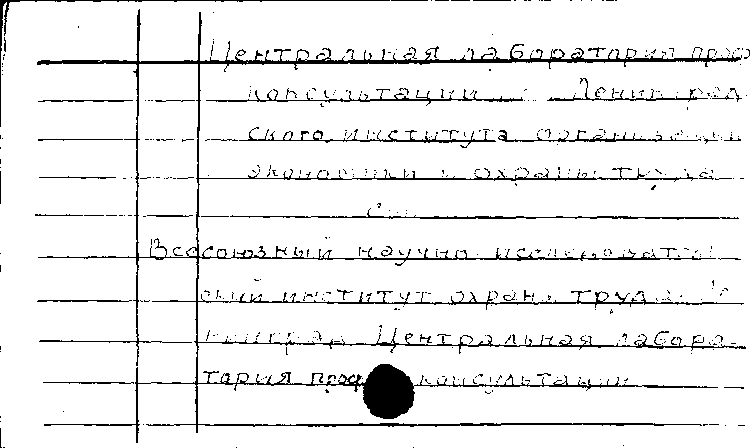 Центральная лаборатория проф
консультации Ленинград
ского института организации
экономики и охраны труда
См.
Всесоюзный научно исследовател
ский институт охраны труда. Ле
нинград Центральная лабора-
тория проф консультации